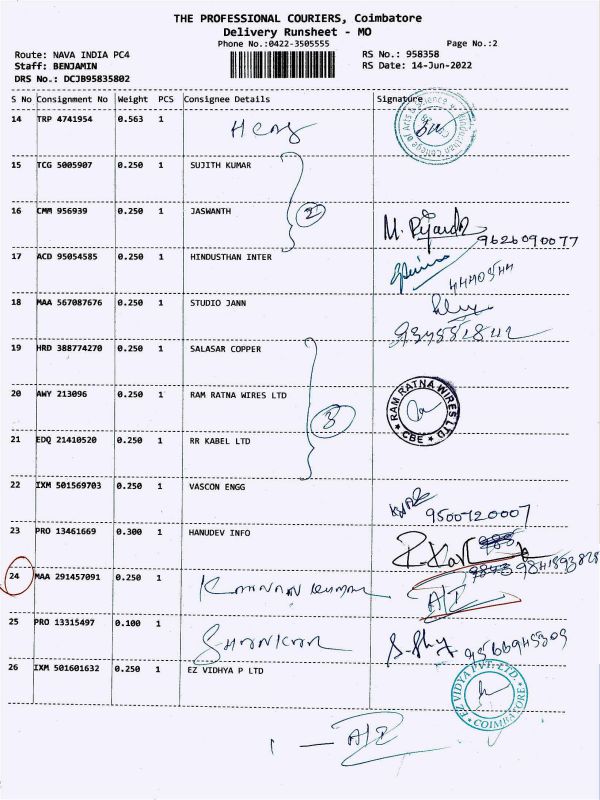 THE PROFESSIONAL COURIERS, Coimbatore
Delivery Runsheet - MO
Phone No.:0422-3505555
Page No.:2
Route: NAVA INDIA PC4
RS No.: 958358
Staff: BENJAMIN
RS Date: 14-Jun-2022
DRS No.: DCJB95835802
S No Consignment No Weight PCS Consignee Details Signature
14 TRP 4741954 0.563 1
Hindusthan College of Arts & Science
15 TCG 5005907 0.250 1 SUJITH KUMAR
16 CMM 956939 0.250 1 JASWANTH
2
9626090077
17 ACD 95054585 0.250 1 HINDUSTHAN INTER
18 MAA 567087676 0.250 1 STUDIO JANN
19 HRD 388774270 0.250 1 SALASAR COPPER
20 AWY 213096 0.250 1 RAM RATNA WIRES LTD
RAM RATNA WIRES LTD
CBE
3
21 EDQ 21410520 0.250 1 RR KABEL LTD
22 IXM 501569703 0.250 1 VASCON ENGG
9500720007
23 PRO 13461669 0.300 1 HANUDEV INFO
9841893828
24 MAA 291457091 0.250 1 Kannan Kumar
25 PRO 13315497 0.100 1 Shankar
26 IXM 501601632 0.250 1 EZ VIDHYA P LTD
EZ VIDYA PVT. LTD.
COIMBATORE